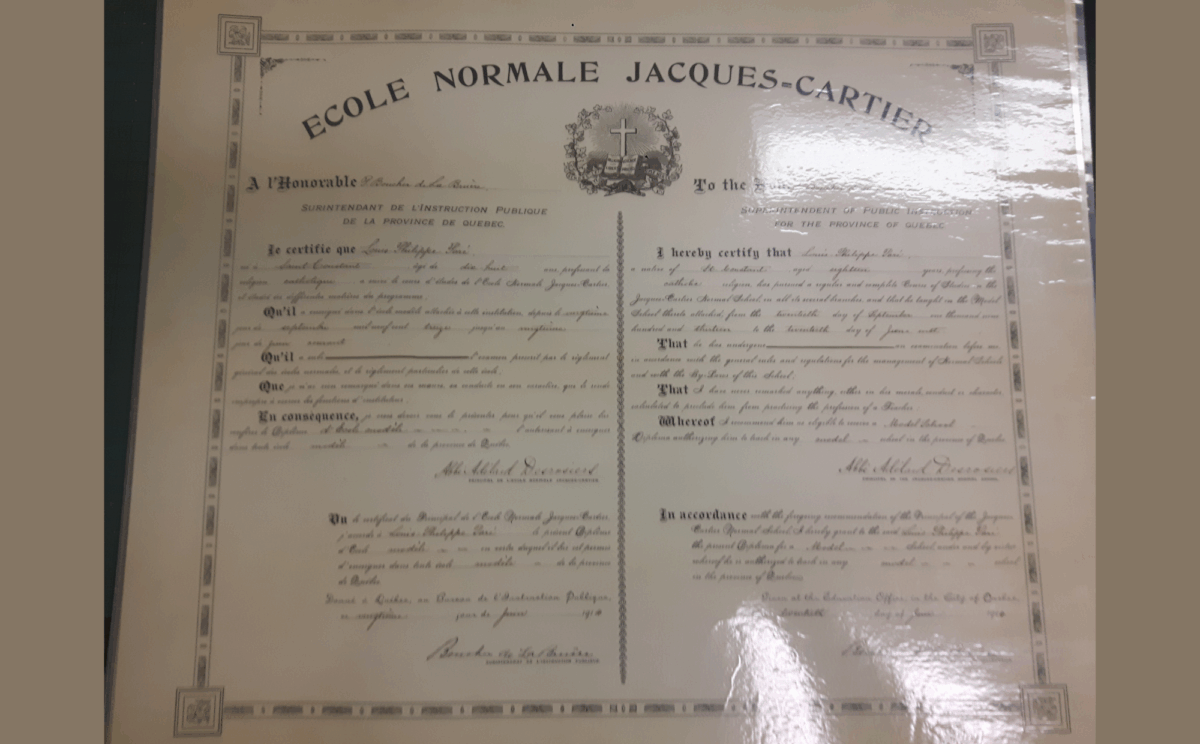 ECOLE NORMALE JACQUES-CARTIER
A l'Honorable P. Boucher de La Bruère
SURINTENDANT DE L'INSTRUCTION PUBLIQUE
DE LA PROVINCE DE QUEBEC.
Je certifie que Louis Philippe
né à Saint Constant âgé de dix huit ans professant la
religion catholique a suivi le cours d'études de l'Ecole Normale Jacques-Cartier,
et étudié les différentes matières du programme.
Qu'il a enseigné dans l'école modèle attachée à cette institution, depuis le vingtième
jour de septembre mil neuf cent treize jusqu'au vingtième
jour de juin
Qu'il a subi l'examen prescrit par le règlement
général des écoles normales, et le règlement particulier de cette école.
Que je n'ai rien remarqué dans ses mœurs, sa conduite ou son caractère, qui le rende
impropre à exercer les fonctions d'instituteur.
En conséquence, je vous donne le présente pour qu'il vous plaise lui
Diplôme d'Ecole modèle l'autorisant à enseigner
dans toute école modèle de la province de Québec.
Abbé Adélard Desrosiers
PRINCIPAL DE L'ECOLE NORMALE JACQUES-CARTIER.
Vu le certificat du Principal de l'Ecole Normale Jacques-Cartier,
j'accorde à Louis Philippe le présent Diplôme
d'Ecole modèle en vertu duquel il lui est permis
d'enseigner dans toute école modèle de la province
de Québec.
Donné à Québec, au Bureau de l'Instruction Publique,
ce vingtième jour de juin
Boucher de La Bruère
SURINTENDANT DE L'INSTRUCTION PUBLIQUE.
To the
SUPERINTENDENT OF PUBLIC INSTRUCTION
FOR THE PROVINCE OF QUEBEC.
I hereby certify that Louis Philippe
a native of St. Constant aged eighteen years professing the
catholic religion, has pursued a regular and complete Course of Studies in the
Jacques-Cartier Normal School in all its several branches, and that he taught in the Model
School thereto attached from the twentieth day of September one thousand nine
hundred and thirteen to the twentieth day of June
That he has undergone an examination before me
in accordance with the general rules and regulations for the management of Normal Schools
and with the By-Laws of this School.
That I have never remarked anything, either in his morals, conduct or character
calculated to preclude him from practising the profession of a Teacher.
Whereof I recommend him as eligible to receive a Model School
Diploma authorizing him to teach in any model school in the province of Quebec
Abbé Adélard Desrosiers
PRINCIPAL OF THE JACQUES-CARTIER NORMAL SCHOOL.
In accordance with the foregoing recommendation of the Principal of the Jacques-
Cartier Normal School I hereby grant to the said Louis Philippe
the present Diploma for a Model School under and by virtue
whereof he is authorized to teach in any model school
in the province of Quebec.
Given at the Education Office, in the City of Quebec,
twentieth day of June